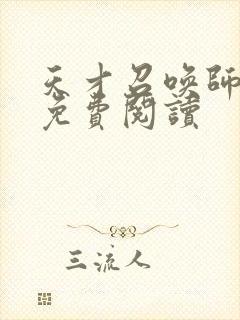 天才召喚師
免費閱讀
三流人